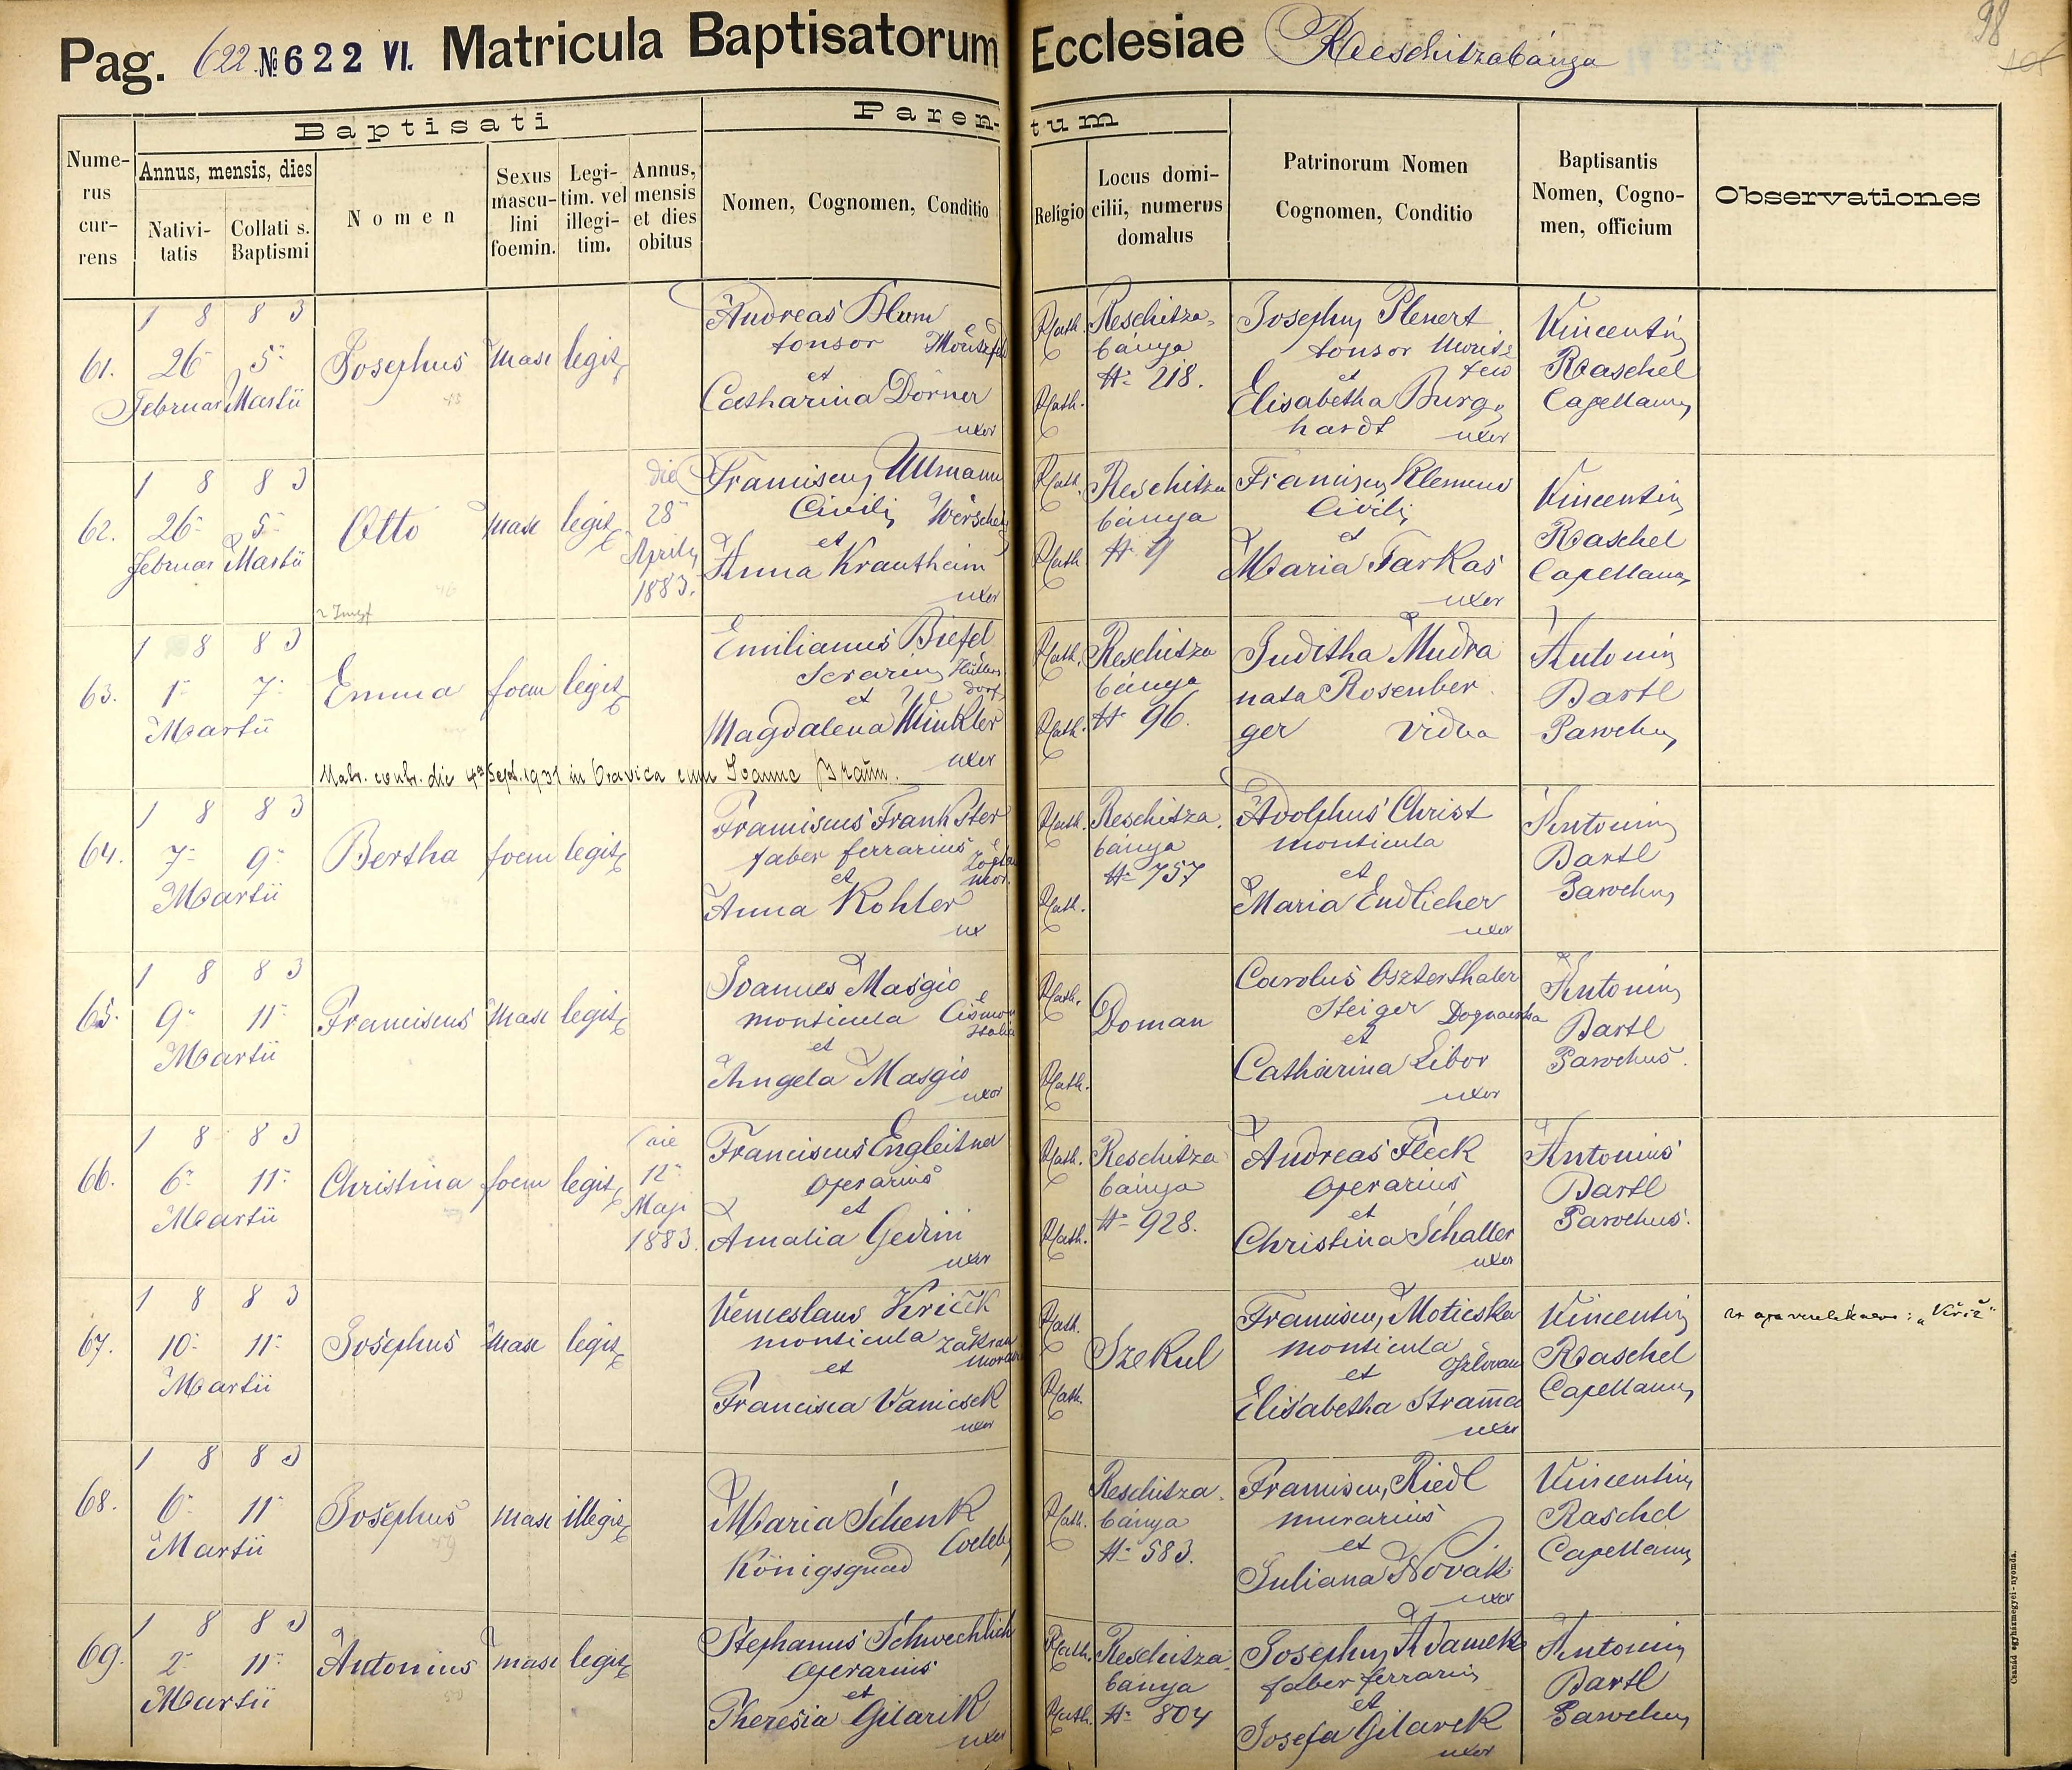 Pag. 622 № 622 VI. Matricula Baptisatorum Ecclesiae Reschitzabánya
98
Baptisati
Parentum
Numerus currens
Annus, mensis, dies
Nativitatis
Collati s. Baptismi
Nomen
Sexus masculini foemin.
Legitim. vel illegitim.
Annus, mensis et dies obitus
Nomen, Cognomen, Conditio
Religio
Locus domicilii, numerus domalus
Patrinorum Nomen Cognomen, Conditio
Baptisantis Nomen, Cognomen, officium
Observationes
61.
1 8 8 3
26 5
Februar Martii
Josephus
masc
legit
Andreas Blum
tonsor Moritzfeld
et
Catharina Dorner
uxor
Rkath.
Rkath.
Reschitza-
bánya
№ 218.
Josephus Plenert
tonsor Moritz
feld
et
Elisabetha Burg-
hardt uxor
Vincentius
Raschel
Capellanus
62.
1 8 8 3
26 5
Februar Martii
Otto
masc
legit
die
28
Aprilis
1883.
Franciscus Ullmann
Civilis Werschetz
et
Anna Krautheim
uxor
Rkath.
Rkath
Reschitza
bánya
№ 9
Franciscus Klemens
Civilis
et
Maria Farkas
uxor
Vincentius
Raschel
Capellanus
63.
1 8 8 3
1 7
Martii
Emma
foem
legit
Emilianus Biefel
Serarius
dorf
et
Magdalena Winkler
uxor
Rkath.
Rkath.
Reschitza
bánya
№ 96.
Juditha Mudra
nata Rosenber
ger vidua
Antonius
Bartl
Parochus
Matr. contr. die 4ª Sept. 1931 in Oravica cum Joanne Braun.
64.
1 8 8 3
7 9
Martii
Bertha
foem
legit
Franciscus Frank Ster
faber ferrarius
et
Anna Kohler
ux
Rkath.
Rkath.
Reschitza.
bánya
№ 757
Adolphus Christ
monticula
et
Maria Endlicher
uxor
Antonius
Bartl
Parochus
65.
1 8 8 3
9 11
Martii
Franciscus
masc
legit
Joannes Masgio
monticula Cismon
Italia
et
Angela Masgio
uxor
Rkath.
Rkath.
Doman
Carolus Oszterthaler
Steiger Dognacska
et
Catharina Libor
uxor
Antonius
Bartl
Parochus.
66.
1 8 8 3
6 11
Martii
Christina
foem
legit
die
12
Maji
1883.
Franciscus Engleitner
operarius
et
Amalia Gedini
uxor
Rkath.
Rkath.
Reschitza
bánya
№ 928.
Andreas Fleck
operarius
et
Christina Schaller
uxor
Antonius
Bartl
Parochus.
67.
1 8 8 3
10 11
Martii
Josephus
masc
legit
Venceslaus Kriček
monticula
et
Francisca Vanicsek
uxor
Rkath.
Rkath.
Szekul
Franciscus Moticska
monticula
et
Elisabetha Strama
uxor
Vincentius
Raschel
Capellanus
Az apa vezetékneve: „Křiž"
68.
1 8 8 3
6 11
Martii
Josephus
masc
illegit
Maria Schenk
Coelebs
Königsgnad
Rkath.
Reschitza.
bánya
№ 583.
Franciscus Riedl
murarius
et
Juliana Novák
uxor
Vincentius
Raschel
Capellanus
69.
1 8 8 3
2 11
Martii
Antonius
masc
legit
Stephanus Schwechlich
operarius
et
Theresia Gilarik
uxor
Rkath.
Rkath.
Reschitza.
bánya
№ 804
Josephus Adamek
faber ferrarius
et
Josefa Gilarek
uxor
Antonius
Bartl
Parochus
Csanád egyházmegyei-nyomda.